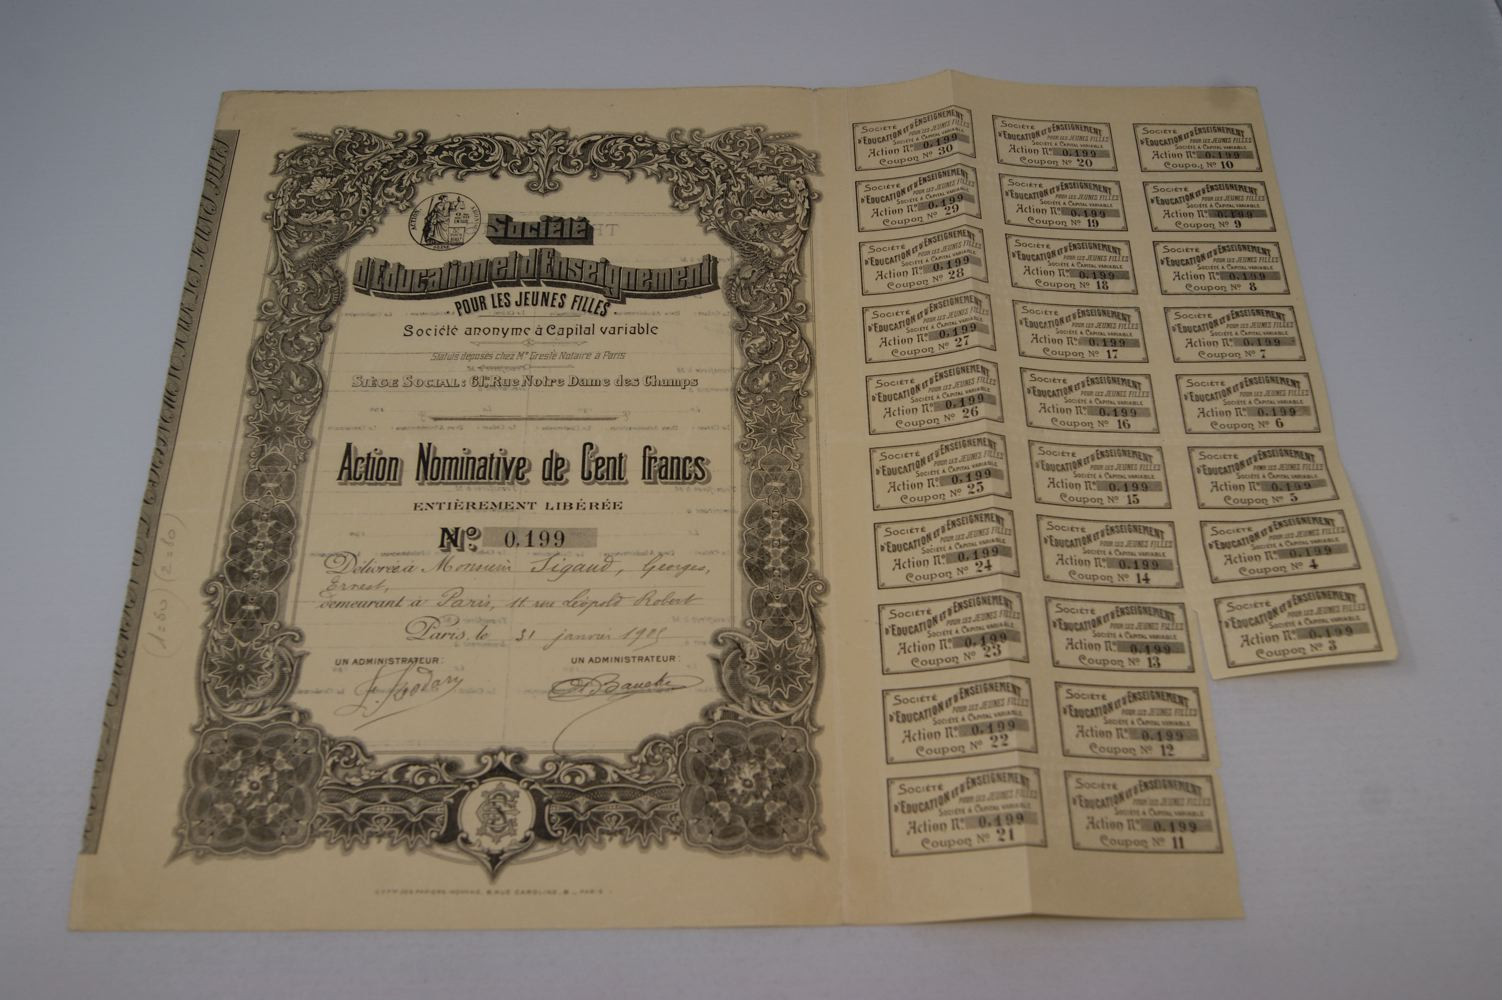 Société
d'Education et d'Enseignement
POUR LES JEUNES FILLES
Société anonyme à Capital variable
Statuts déposés chez Me Greslé Notaire à Paris
SIÈGE SOCIAL: 61bis, Rue Notre Dame des Champs
Action Nominative de Cent francs
ENTIÈREMENT LIBÉRÉE
No 0,199
Délivrée à Monsieur Sigaud, Georges,
Ernest,
demeurant à Paris, 11 rue Léopold Robert
Paris, le 31 janvier 1905
UN ADMINISTRATEUR: UN ADMINISTRATEUR:
(1=50) (2=50)
SOCIÉTÉ
D'EDUCATION ET D'ENSEIGNEMENT
POUR LES JEUNES FILLES
SOCIÉTÉ A CAPITAL VARIABLE
Action No 0,199
Coupon No 30
SOCIÉTÉ
D'EDUCATION ET D'ENSEIGNEMENT
POUR LES JEUNES FILLES
SOCIÉTÉ A CAPITAL VARIABLE
Action No 0,199
Coupon No 20
SOCIÉTÉ
D'EDUCATION ET D'ENSEIGNEMENT
POUR LES JEUNES FILLES
SOCIÉTÉ A CAPITAL VARIABLE
Action No 0,199
Coupon No 10
SOCIÉTÉ
D'EDUCATION ET D'ENSEIGNEMENT
POUR LES JEUNES FILLES
SOCIÉTÉ A CAPITAL VARIABLE
Action No 0,199
Coupon No 29
SOCIÉTÉ
D'EDUCATION ET D'ENSEIGNEMENT
POUR LES JEUNES FILLES
SOCIÉTÉ A CAPITAL VARIABLE
Action No 0,199
Coupon No 19
SOCIÉTÉ
D'EDUCATION ET D'ENSEIGNEMENT
POUR LES JEUNES FILLES
SOCIÉTÉ A CAPITAL VARIABLE
Action No 0,199
Coupon No 9
SOCIÉTÉ
D'EDUCATION ET D'ENSEIGNEMENT
POUR LES JEUNES FILLES
SOCIÉTÉ A CAPITAL VARIABLE
Action No 0,199
Coupon No 28
SOCIÉTÉ
D'EDUCATION ET D'ENSEIGNEMENT
POUR LES JEUNES FILLES
SOCIÉTÉ A CAPITAL VARIABLE
Action No 0,199
Coupon No 18
SOCIÉTÉ
D'EDUCATION ET D'ENSEIGNEMENT
POUR LES JEUNES FILLES
SOCIÉTÉ A CAPITAL VARIABLE
Action No 0,199
Coupon No 8
SOCIÉTÉ
D'EDUCATION ET D'ENSEIGNEMENT
POUR LES JEUNES FILLES
SOCIÉTÉ A CAPITAL VARIABLE
Action No 0,199
Coupon No 27
SOCIÉTÉ
D'EDUCATION ET D'ENSEIGNEMENT
POUR LES JEUNES FILLES
SOCIÉTÉ A CAPITAL VARIABLE
Action No 0,199
Coupon No 17
SOCIÉTÉ
D'EDUCATION ET D'ENSEIGNEMENT
POUR LES JEUNES FILLES
SOCIÉTÉ A CAPITAL VARIABLE
Action No 0,199
Coupon No 7
SOCIÉTÉ
D'EDUCATION ET D'ENSEIGNEMENT
POUR LES JEUNES FILLES
SOCIÉTÉ A CAPITAL VARIABLE
Action No 0,199
Coupon No 26
SOCIÉTÉ
D'EDUCATION ET D'ENSEIGNEMENT
POUR LES JEUNES FILLES
SOCIÉTÉ A CAPITAL VARIABLE
Action No 0,199
Coupon No 16
SOCIÉTÉ
D'EDUCATION ET D'ENSEIGNEMENT
POUR LES JEUNES FILLES
SOCIÉTÉ A CAPITAL VARIABLE
Action No 0,199
Coupon No 6
SOCIÉTÉ
D'EDUCATION ET D'ENSEIGNEMENT
POUR LES JEUNES FILLES
SOCIÉTÉ A CAPITAL VARIABLE
Action No 0,199
Coupon No 25
SOCIÉTÉ
D'EDUCATION ET D'ENSEIGNEMENT
POUR LES JEUNES FILLES
SOCIÉTÉ A CAPITAL VARIABLE
Action No 0,199
Coupon No 15
SOCIÉTÉ
D'EDUCATION ET D'ENSEIGNEMENT
POUR LES JEUNES FILLES
SOCIÉTÉ A CAPITAL VARIABLE
Action No 0,199
Coupon No 5
SOCIÉTÉ
D'EDUCATION ET D'ENSEIGNEMENT
POUR LES JEUNES FILLES
SOCIÉTÉ A CAPITAL VARIABLE
Action No 0,199
Coupon No 24
SOCIÉTÉ
D'EDUCATION ET D'ENSEIGNEMENT
POUR LES JEUNES FILLES
SOCIÉTÉ A CAPITAL VARIABLE
Action No 0,199
Coupon No 14
SOCIÉTÉ
D'EDUCATION ET D'ENSEIGNEMENT
POUR LES JEUNES FILLES
SOCIÉTÉ A CAPITAL VARIABLE
Action No 0,199
Coupon No 4
SOCIÉTÉ
D'EDUCATION ET D'ENSEIGNEMENT
POUR LES JEUNES FILLES
SOCIÉTÉ A CAPITAL VARIABLE
Action No 0,199
Coupon No 23
SOCIÉTÉ
D'EDUCATION ET D'ENSEIGNEMENT
POUR LES JEUNES FILLES
SOCIÉTÉ A CAPITAL VARIABLE
Action No 0,199
Coupon No 13
SOCIÉTÉ
D'EDUCATION ET D'ENSEIGNEMENT
POUR LES JEUNES FILLES
SOCIÉTÉ A CAPITAL VARIABLE
Action No 0,199
Coupon No 3
SOCIÉTÉ
D'EDUCATION ET D'ENSEIGNEMENT
POUR LES JEUNES FILLES
SOCIÉTÉ A CAPITAL VARIABLE
Action No 0,199
Coupon No 22
SOCIÉTÉ
D'EDUCATION ET D'ENSEIGNEMENT
POUR LES JEUNES FILLES
SOCIÉTÉ A CAPITAL VARIABLE
Action No 0,199
Coupon No 12
SOCIÉTÉ
D'EDUCATION ET D'ENSEIGNEMENT
POUR LES JEUNES FILLES
SOCIÉTÉ A CAPITAL VARIABLE
Action No 0,199
Coupon No 21
SOCIÉTÉ
D'EDUCATION ET D'ENSEIGNEMENT
POUR LES JEUNES FILLES
SOCIÉTÉ A CAPITAL VARIABLE
Action No 0,199
Coupon No 11